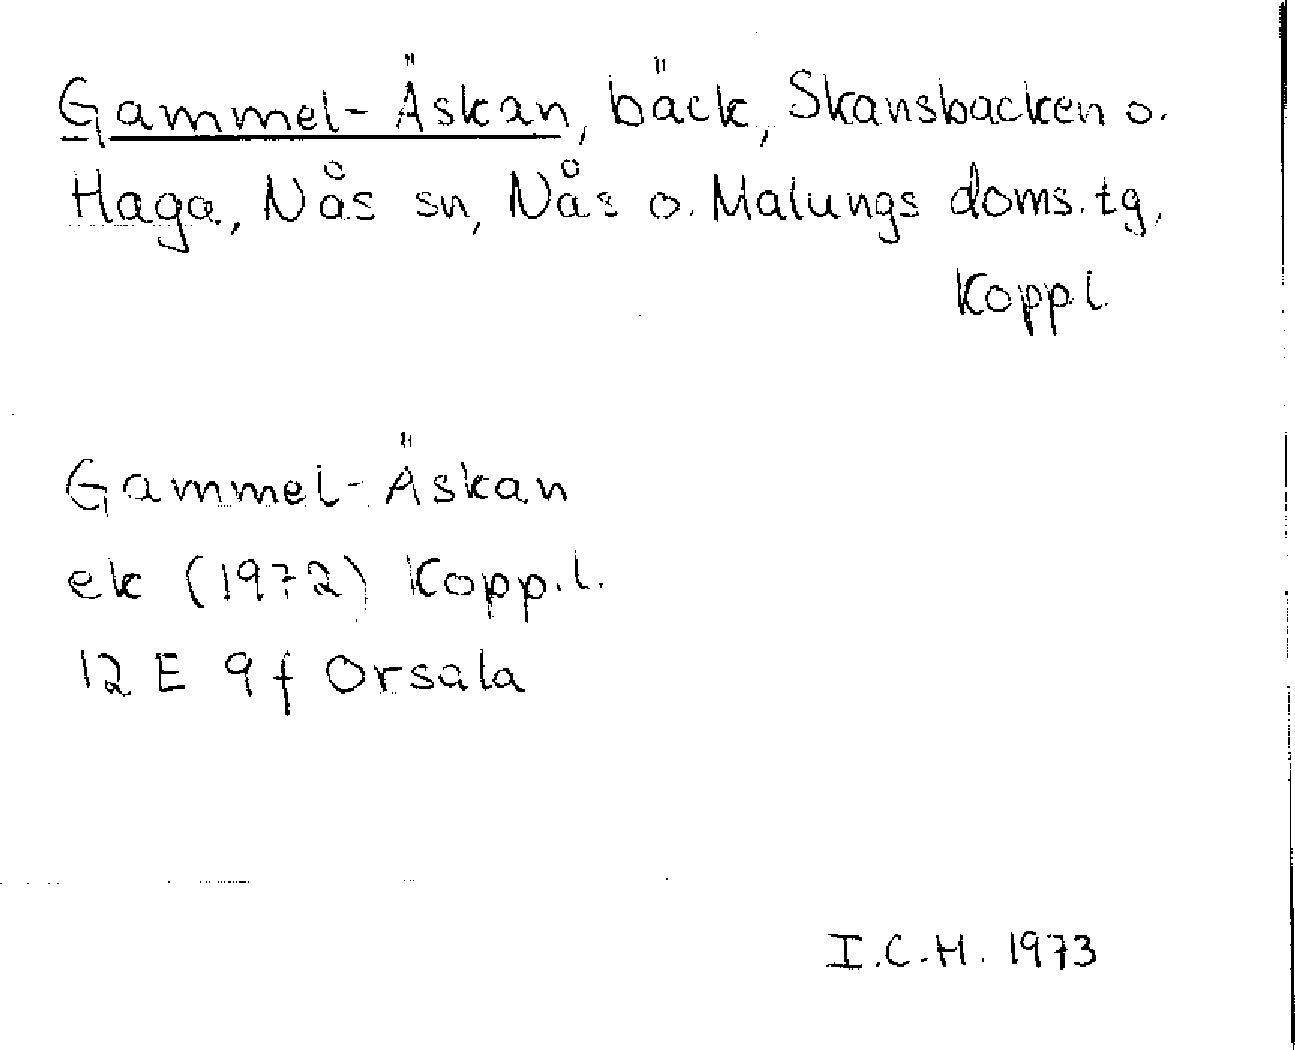 Gammel-Äskan, bäck, Skansbacken o.
Haga, Nås sn, Nås o. Malungs doms.tg,
Koppl.
Gammel-Äskan
ek (1972) Kopp.l.
12 E 9 f Orsala
I.C.H. 1973